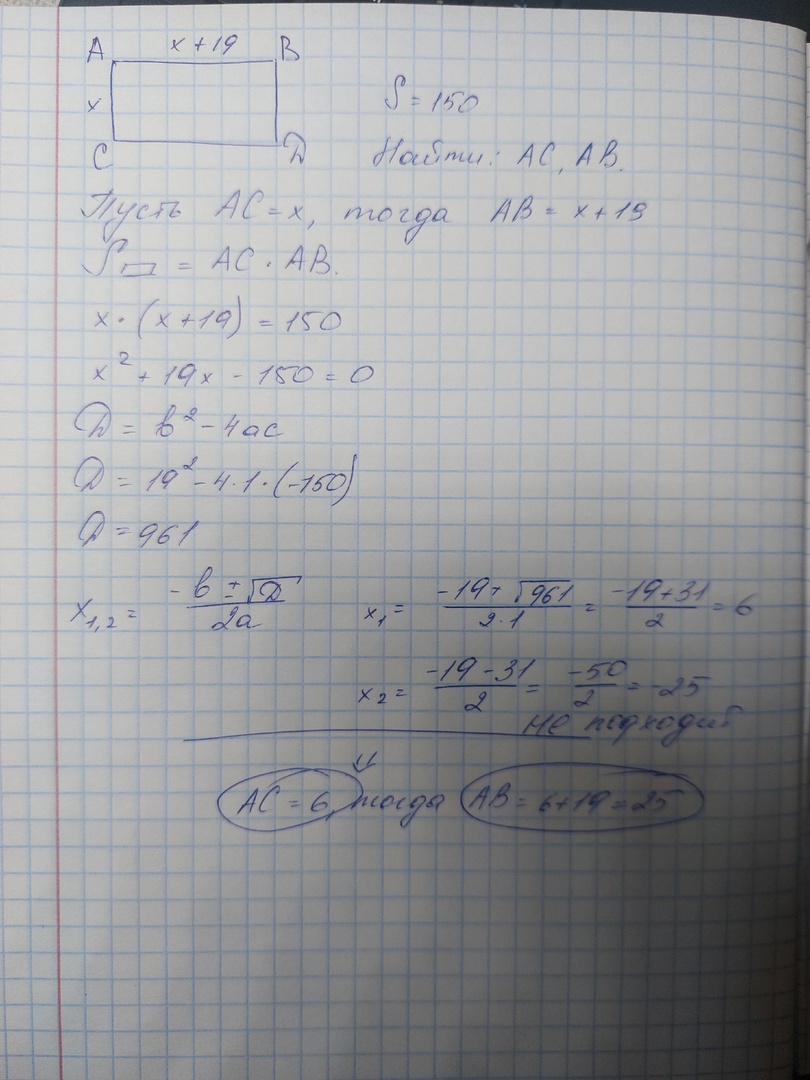 x + 19
A B
x
S = 150
C D
Найти: AC, AB.
Пусть AC = x, тогда AB = x + 19
S▭ = AC · AB.
x · (x + 19) = 150
x² + 19x - 150 = 0
D = b² - 4ac
D = 19² - 4 · 1 · (-150)
D = 961
x₁,₂ = (-b ± √D)/(2a) x₁ = (-19 + √961)/(2 · 1) = (-19 + 31)/2 = 6
x₂ = (-19 - 31)/2 = -50/2 = -25
не подходит
⇓
AC = 6, тогда AB = 6 + 19 = 25